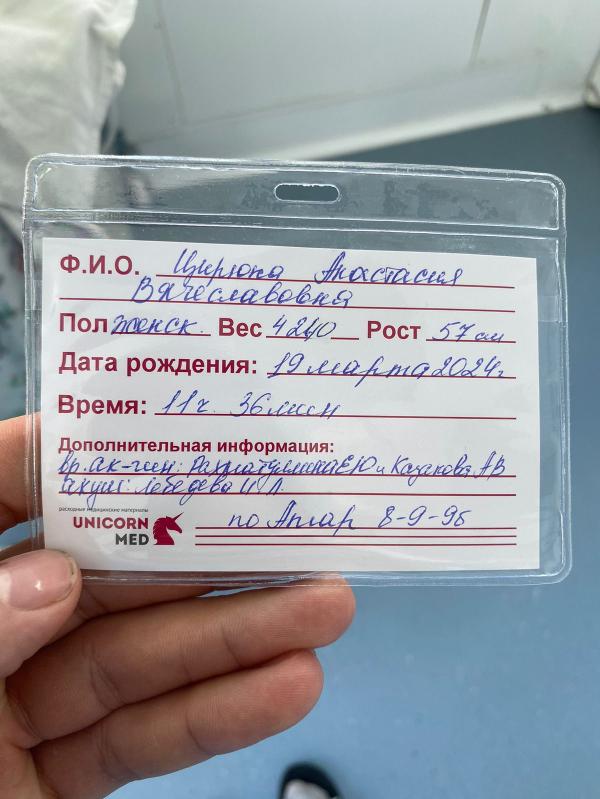 Ф.И.О. Цирюна Анастасия
Вячеславовна
Пол женск. Вес 4240 Рост 57 см
Дата рождения: 19 марта 2024г
Время: 11 ч. 36 мин
Дополнительная информация:
вр. ак-гин: Рахматуллина Е Ю и Казакова А В
акуш: Лебедева И Л.
расходные медицинские материалы
UNICORN
MED
по Апгар 8-9-9б